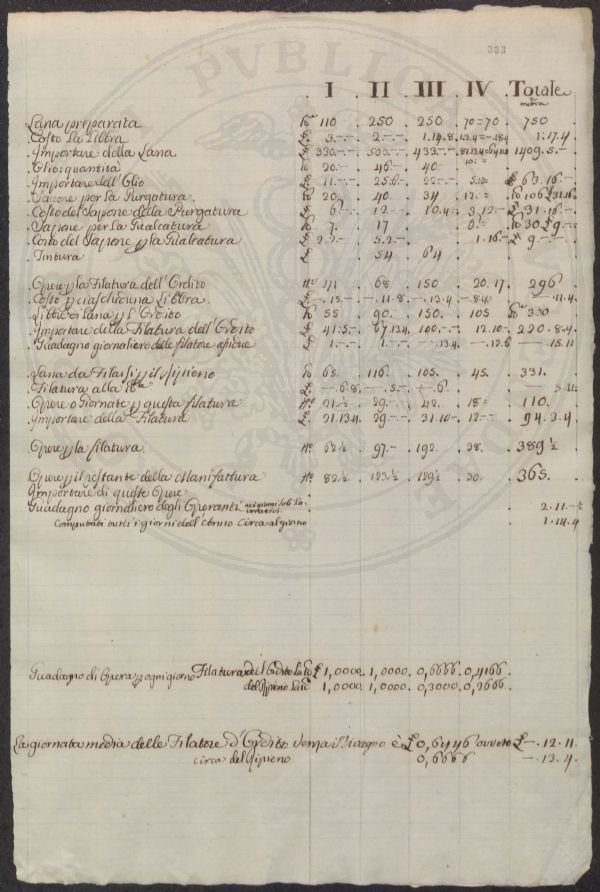 333
I II III IV Totale
Lana preparata 110 . 250 . 250 . 70=70 . 750
Costo La Libbra 3.-.- 2.-.- 1.14.8. 1.17.4
Importare della Lana 330.-.- 500.-.- 433.-.- 1409.5.-
Olio: quantità 20.- 46.- 40.-
Importare dell'Olio 11.-.- 25.6.- 22.-.- 5.10= £ 63.16.-
Sapone per la Purgatura 20. 40. 34 12.=
Costo del Sapone della Purgatura 6.- 12.- 10.4.= 3.12.- £ 31.16.-
Sapone per la Gualcatura 7. 17 6.= 30 £ 9.-
Costo del Sapone p la Gualcatura 5.2.- 1.16.- £ 9.-.-
Tintura 54 64.
Opere p la Filatura dell'Ordito N.° 111 68 150 20.17. 296
Costo p ciascheduna Libbra £ -.15.- -.11.8. -.13.4 -.8.4= -.11.4.
Libbre di Lana p l'Ordito 55 90. 150. 105 300
Importare della Filatura dell'Ordito £ 41.5.- 67.13.4. 100.-.- 12.10.- 220.8.4
Guadagno giornaliero delle filatore £ 1.-.- 1.-.- -.13.4. -.12.6 -.15.11
Lana da Filarsi p il Ripieno 65. 116. 105. 45. 331.
Filatura alla £ -.6.8. -.5.- -.6.
Opere o Giornate p questa filatura N.° 21½ 29.- 42. 18= 110.
Importare della Filatura £ 21.13.4 29.-.- 31.10- 12.-.- 94.3.4
Opere p la filatura. N.° 62½ 97.- 192. 38. 389½
Opere p il restante della Manifattura N.° 82½ 123½ 129½ 30. 365.
Importare di queste Opere
Guadagno giornaliero degli Operanti nei giorni soli Lavorativi 2.11.-½
Computati tutti i giorni dell'Anno circa al giorno 1.14.4
Guadagno di Opera p ogni giorno Filatura del l'Ordito £ 1,0000. 1,0000. 0,6666. 0,4166.
del Ripieno 1,0000. 1,0000. 0,3000. 0,2666.
La giornata media delle Filatore d'Ordito senza il è £ 0,6446 ovvero £ -.12.11.
circa del Ripieno 0,6666 -.13.4.